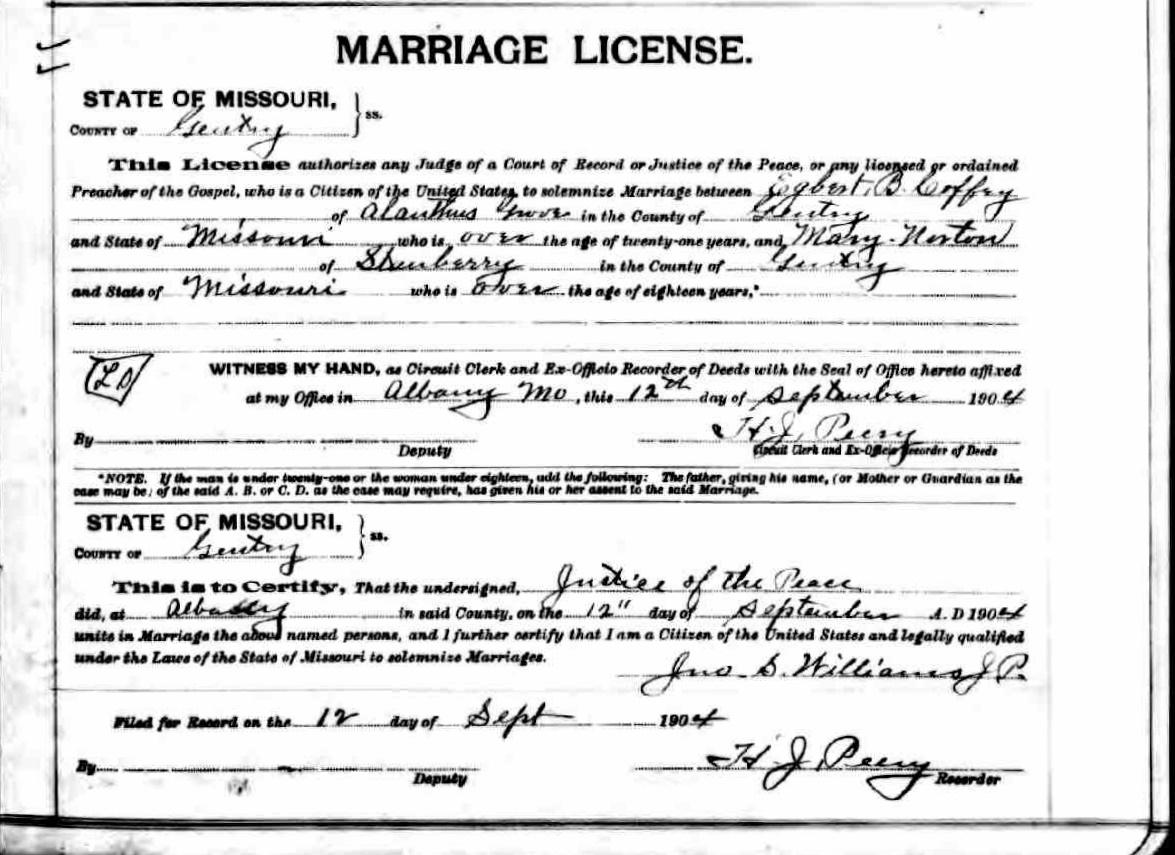 MARRIAGE LICENSE.
STATE OF MISSOURI,
COUNTY OF Gentry } ss.
This License authorizes any Judge of a Court of Record or Justice of the Peace, or any licensed or ordained
Preacher of the Gospel, who is a Citizen of the United States, to solemnize Marriage between Egbert B. Coffey
of Alanthus Grove in the County of Gentry
and State of Missouri who is over the age of twenty-one years, and Mary Norton
of Stanberry in the County of Gentry
and State of Missouri who is over the age of eighteen years,*
WITNESS MY HAND, as Circuit Clerk and Ex-Officio Recorder of Deeds with the Seal of Office hereto affixed
at my Office in Albany Mo, this 12th day of September 1904
H. J. Peery
By Deputy Circuit Clerk and Ex-Officio Recorder of Deeds
*NOTE. If the man is under twenty-one or the woman under eighteen, add the following: The father, giving his name, (or Mother or Guardian as the
case may be; of the said A. B. or C. D. as the case may require, has given his or her assent to the said Marriage.
STATE OF MISSOURI,
COUNTY OF Gentry } ss.
This is to Certify, That the undersigned, Justice of the Peace
did, at Albany in said County, on the 12" day of September A. D 1904
unite in Marriage the above named persons, and I further certify that I am a Citizen of the United States and legally qualified
under the Laws of the State of Missouri to solemnize Marriages.
Jno. S. Williams J P.
Filed for Record on the 12 day of Sept 1904
H. J. Peery
By Deputy Recorder